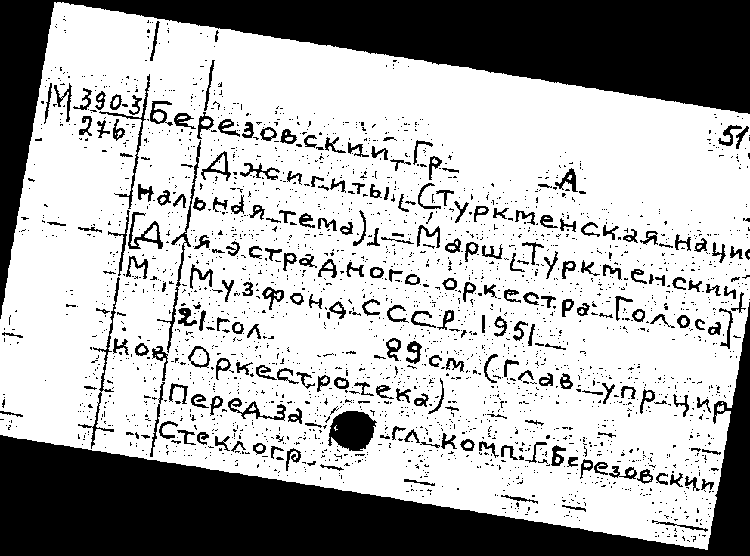 М 390-3 51
276
Березовский, Гр.
А
Джигиты, (Туркменская нацио
нальная тема), - Марш, Туркменский,
[Для эстрадного оркестра. Голоса]
М., Музфонд СССР, 1951
21 гол. 29 см. (Глав. упр. цир
ков. Оркестротека).
Перед загл. комп.: Г. Березовский
Стеклогр.